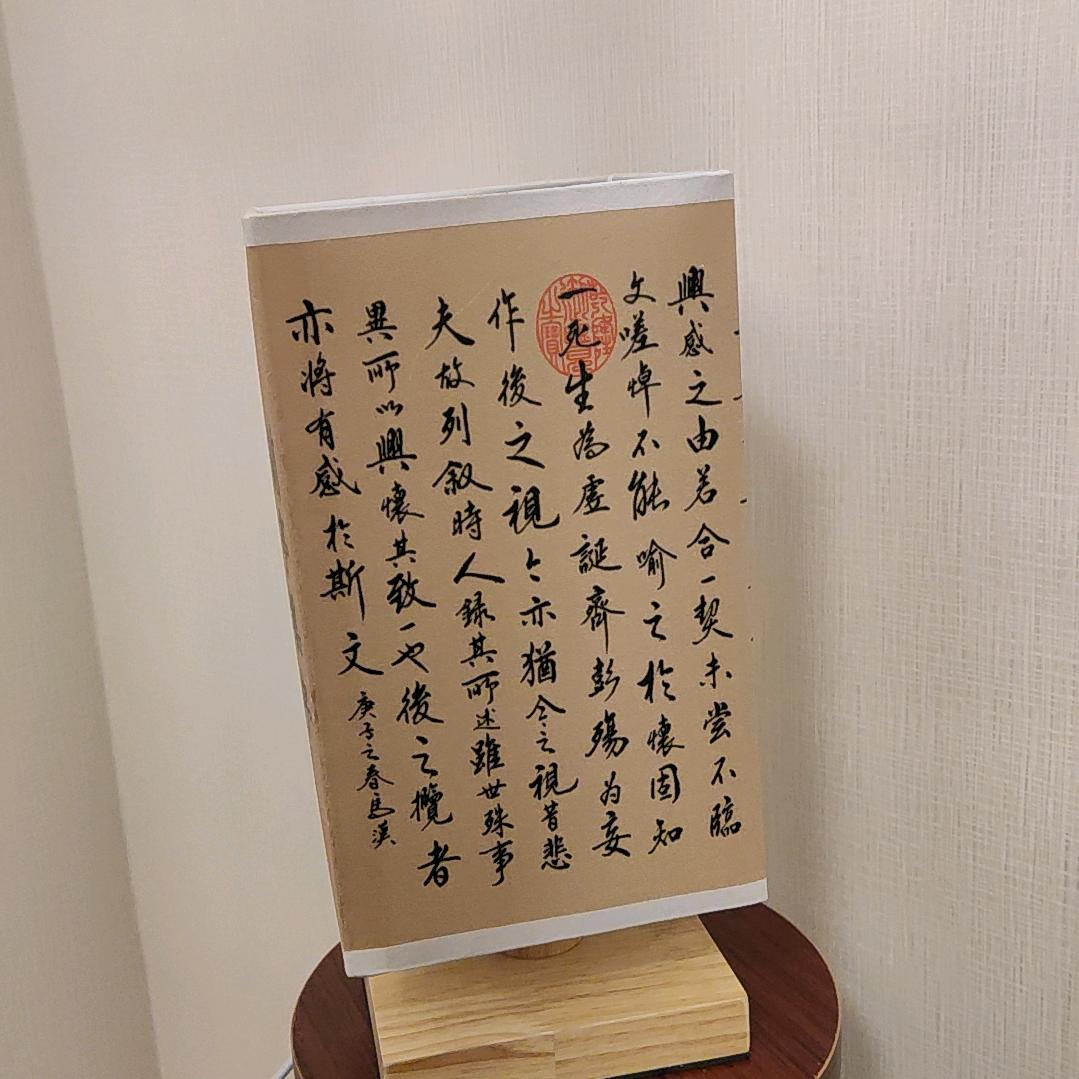 興感之由若合一契未嘗不臨
文嗟悼不能喻之於懷固知
一死生為虛誕齊彭殤为妄
作後之視今亦猶今之視昔悲
夫故列叙時人録其所述雖世殊事
異所以興懷其致一也後之攬者
亦將有感於斯文
庚子之春